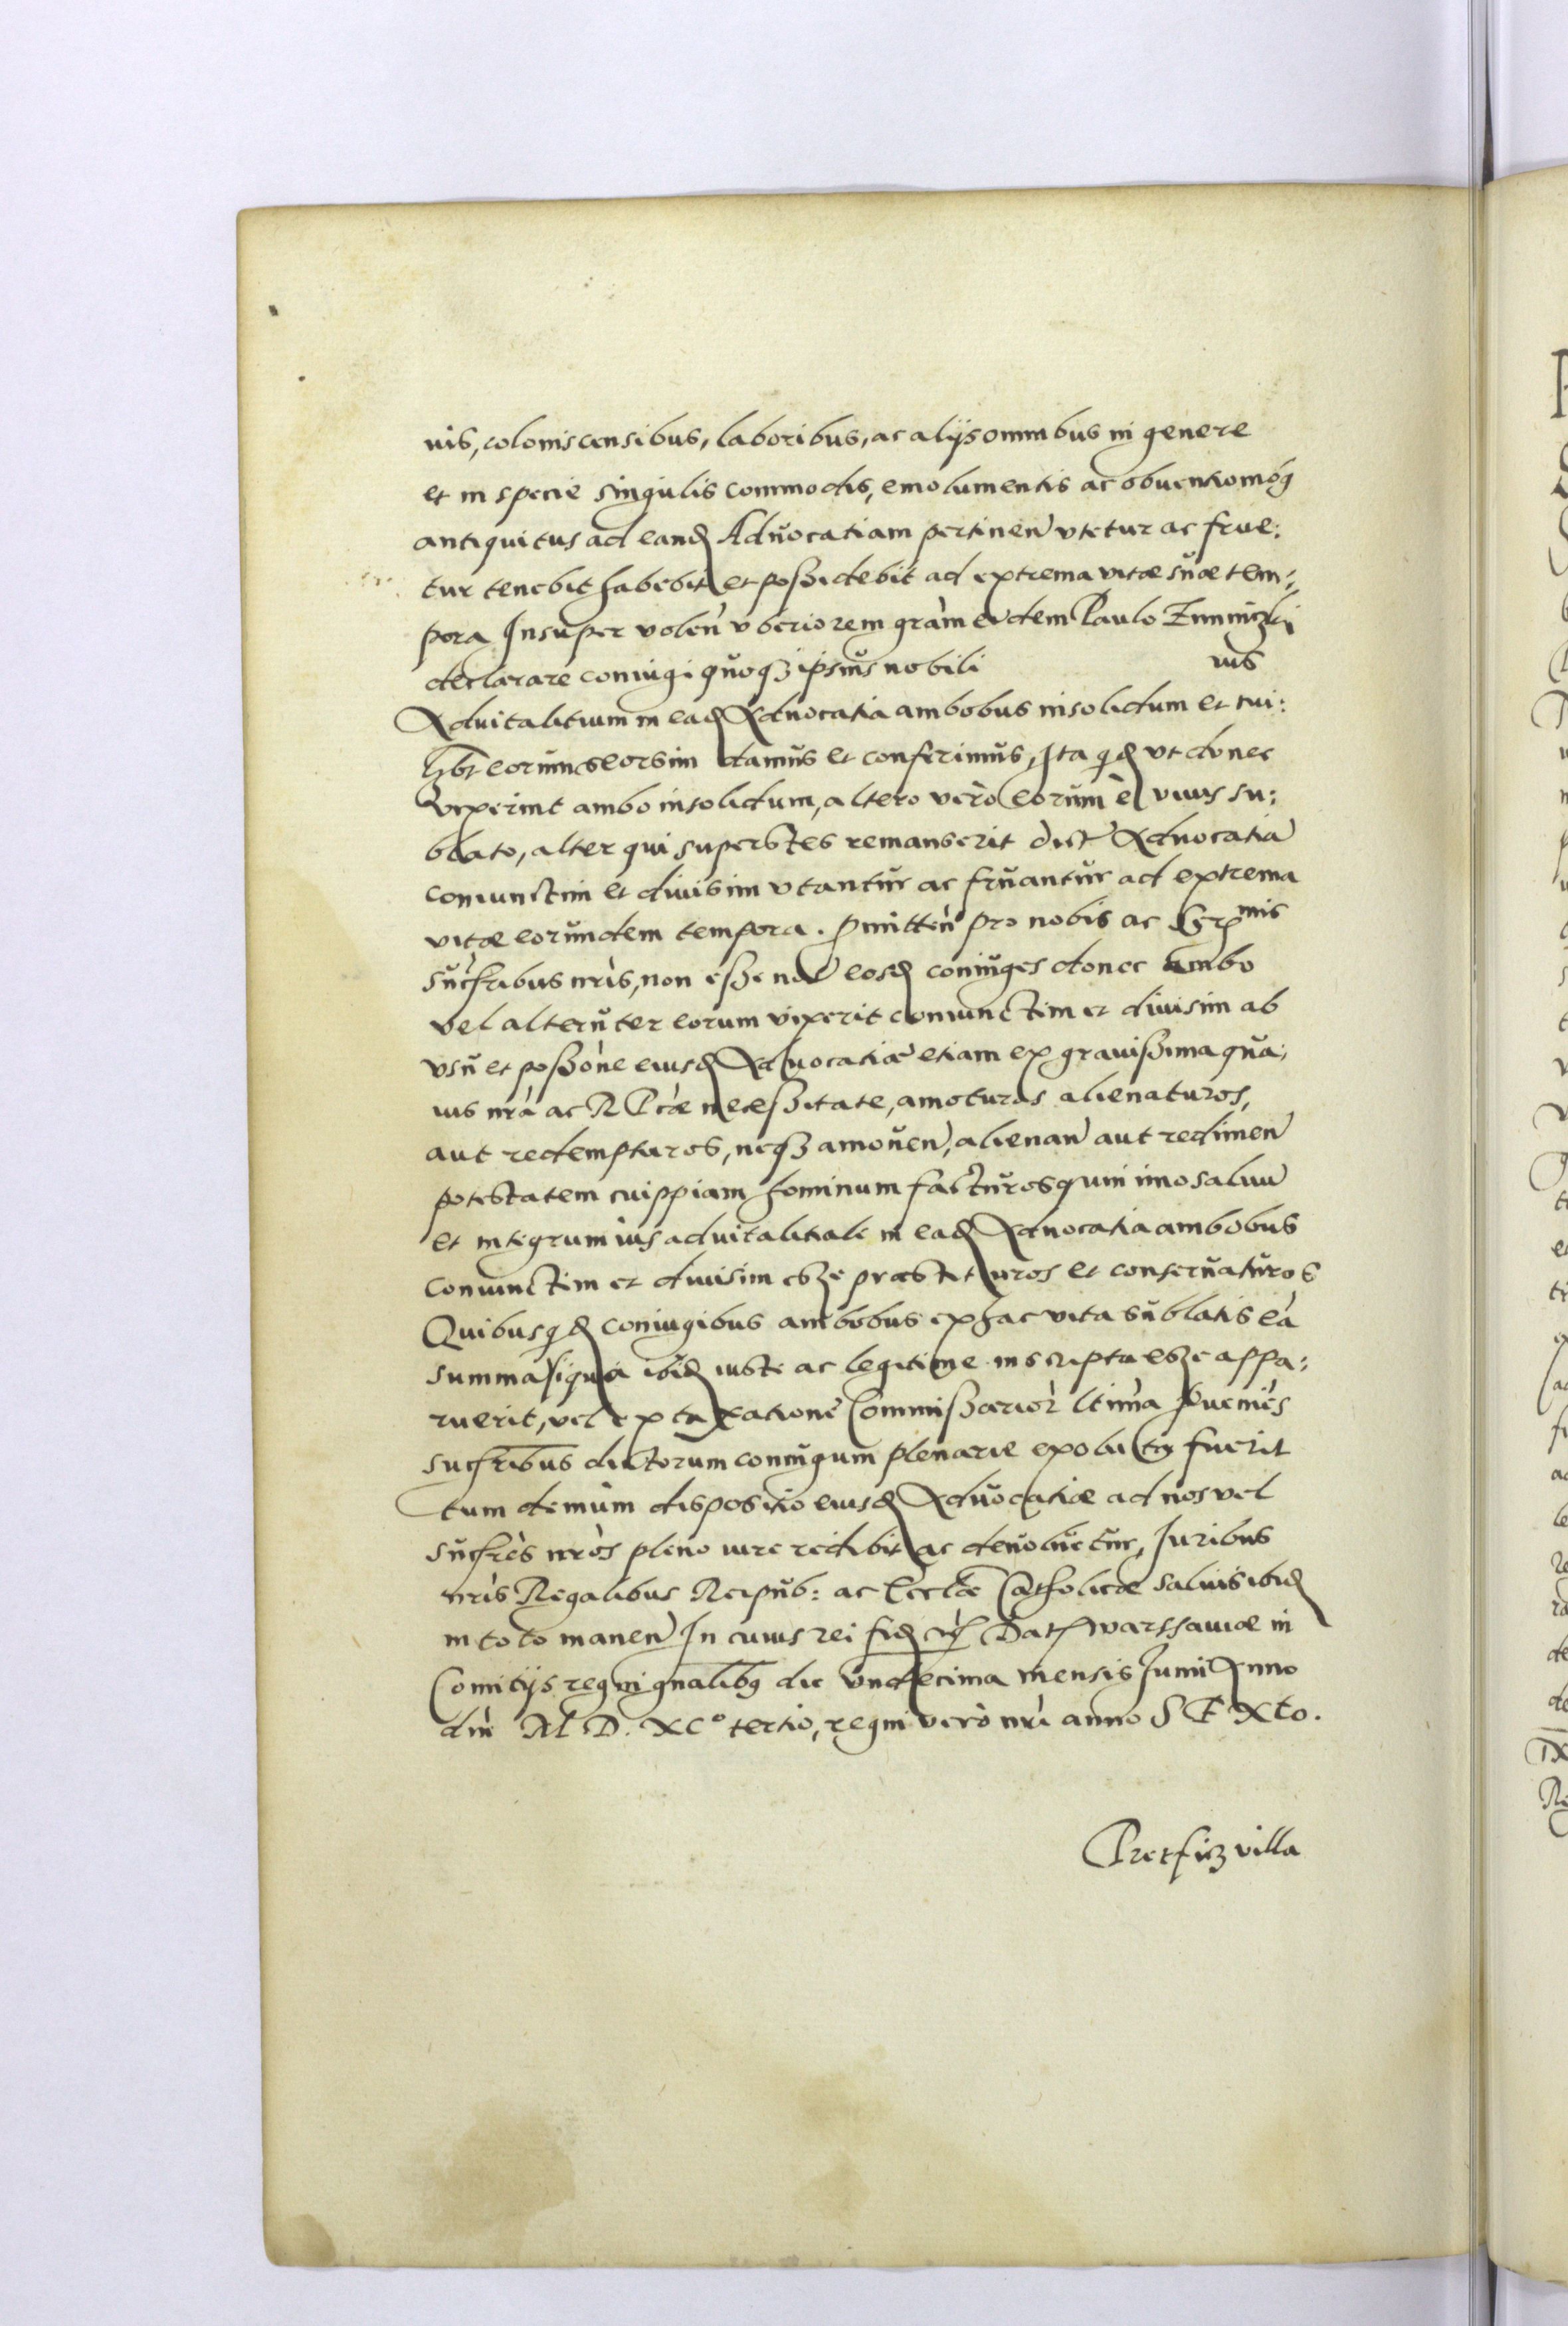 nis, colonis censibus, laboribus, ac alijs omnibus in genere
et in specie singulis commodis, emolumentis ac obuentionibq
antiquitus ad eand Aduocatiam pertinen vtetur ac frue:
tur tenebit habebit et possidebit ad extrema vitæ suæ tem:
pora Insuper volen vberiorem gram eidem Paulo
declarare coniugi quoqз ipsius nobili ius
Aduitalitium in ead Aduocatia ambobus insolidum et cui:
libt eorum seorsim damus et conferimus, Ita qd vt donec
vixerint ambo insolidum, altero vero eorum è viuis su:
blato, alter qui superstes remanserit dict Aduocatia
coniunctim et diuisim vtantur ac fruantur ad extrema
vitæ eorundem tempora. Pmitten pro nobis ac Srmis
sucribus nris, non esse nos eosd coniuges donec ambo
vel alteruter eorum vixerit coniunctim et diuisim ab
vsu et possone eiusd Aduocatiæ etiam ex grauissima qua:
uis nra ac R Pcæ necessitate, amoturos alienaturos,
aut redempturos, neqз amouen, alienan aut redimen
potestatem cuippiam hominum facturos quin imo saluu
et integrum ius aduitalitiale in ead Aduocatia ambobus
coniunctim et diuisim esse præstituros et conseruaturos
Quibus qd coniugibus ambobus ex hac vita sublatis ea
summa siqua ibid iuste ac legitime inscripta esse appa:
ruerit, vel ex taxatione Commissarior ltima pueniès
sucribus dictorum coniugum plenarie exoluta fuerit
tum demum dispositio eiusd Aduocatiæ ad nos vel
sucres nros pleno iure redibit ac deuoluetur, Iuribus
nris Regalibus Reipub: ac Eccłæ Catholicæ saluis ibid
in toto manen In cuius rei fid Dat Warssauiæ in
Comitijs regni gnalibq die vndecima mensis Junii Anno
dni M D. XCo tertio, regni vero nri anno SEXto.
Pretficz villa